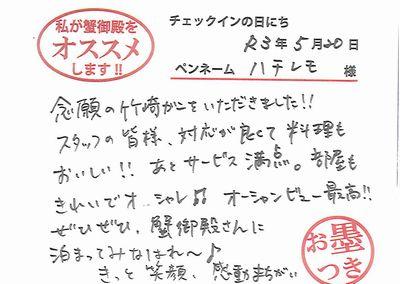 私が蟹御殿を
オススメ
します!!
チェックインの日にち
R3年5月20日
ペンネーム ハチレモ 様
念願の竹崎かにをいただきました!!
スタッフの皆様、対応が良くて料理も
おいしい!! あとサービス満点。部屋も
きれいでオシャレ♫ オーシャンビュー最高!!
ぜひぜひ、蟹御殿さんに
泊まってみなはれ〜♪
きっと笑顔、感動まちがい
お墨
つき